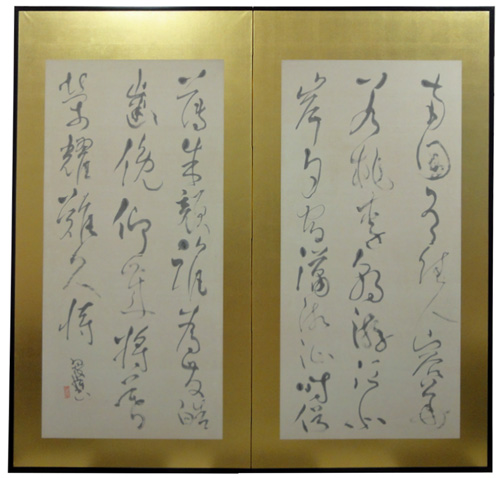 南国有佳人容華
若桃李朝游江北
岸夕宿瀟湘沚時俗
薄朱顏誰為發皓
齒俛仰歲將暮
榮耀難久恃